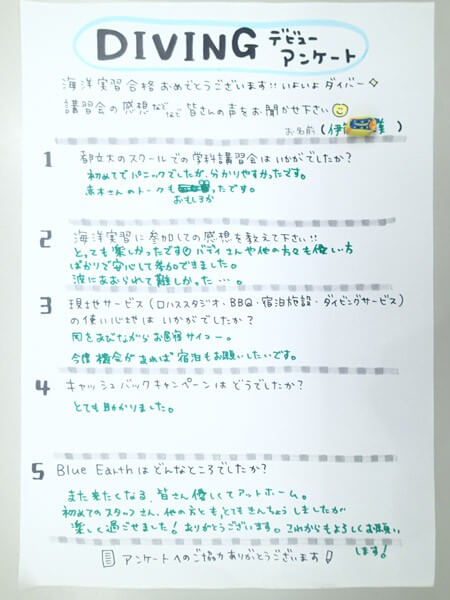 DIVING デビュー アンケート
海洋実習合格おめでとうございます!! いよいよダイバー
講習会の感想などなど皆さんの声をお聞かせ下さい
お名前 (伊 )
1 都立大のスクールでの学科講習会はいかがでしたか?
初めてでパニックでしたが、分かりやすかったです。
赤木さんのトークもおもしろかったです。
2 海洋実習に参加しての感想を教えて下さい!!
とっても楽しかったです バディさんや他の方々も優しい方
ばかりで安心して参加できました。
波にあおられて難しかった…。
3 現地サービス(ロハススタジオ・BBQ・宿泊施設・ダイビングサービス)
の使い心地はいかがでしたか?
雨をあびながらお昼寝サイコー。
今度機会があれば宿泊もお願いしたいです。
4 キャッシュバックキャンペーンはどうでしたか?
とても助かりました。
5 Blue Earthはどんなところでしたか?
また来たくなる、皆さん優しくてアットホーム。
初めてのスタッフさん、他の方とも、とてもきんちょうしましたが
楽しく過ごせました! ありがとうございます。これからもよろしくお願い
します!
アンケートへのご協力ありがとうございます!